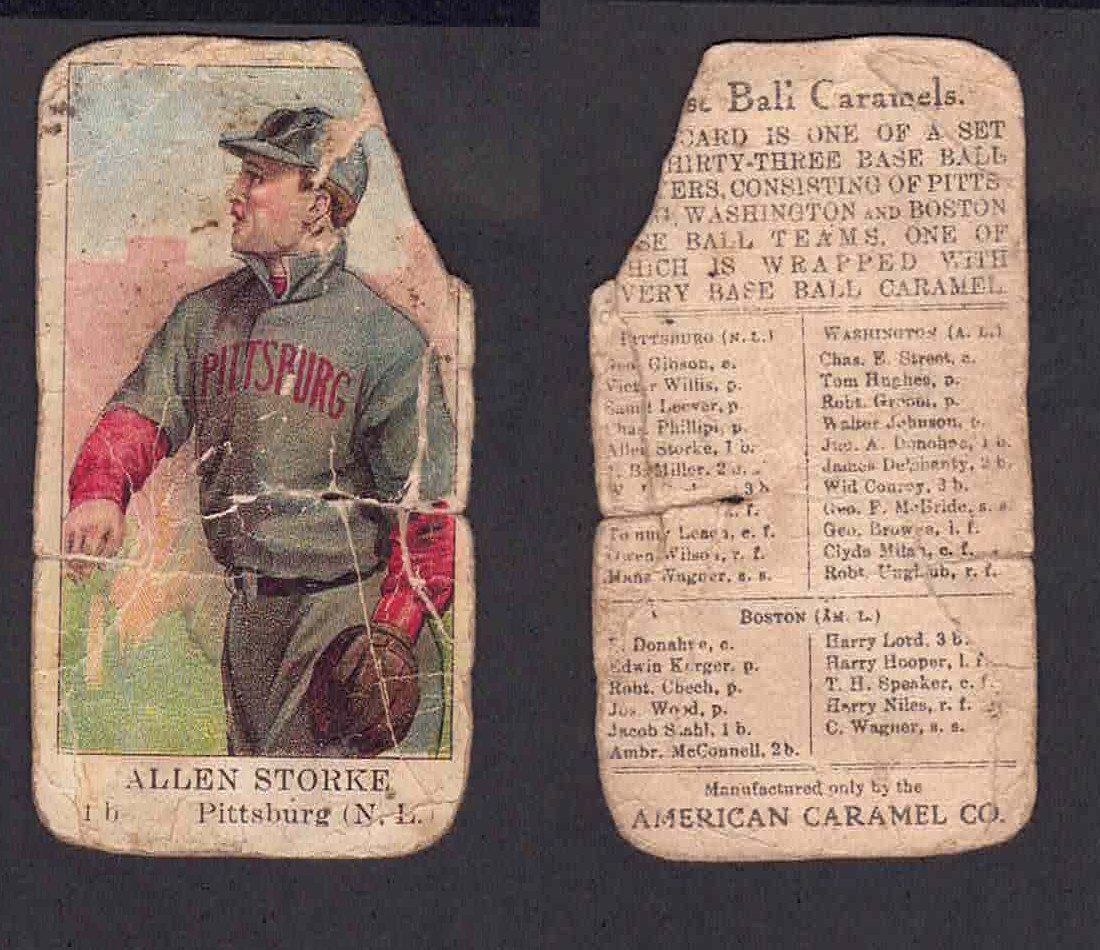 PITTSBURG
ALLEN STORKE
1 b Pittsburg (N. L.)
Ball Caramels.
CARD IS ONE OF A SET
HIRTY-THREE BASE BALL
ERS, CONSISTING OF PITTS-
WASHINGTON AND BOSTON
SE BALL TEAMS. ONE OF
HICH IS WRAPPED WITH
VERY BASE BALL CARAMEL.
PITTSBURG (N. L.)
Geo. Gibson, c.
Victor Willis, p.
Leever, p.
Phillipi, p.
Allen Storke, 1 b.
B. Miller, 2 b.
3 b
l. f.
Tommy Leach, c. f.
Owen Wilson, r. f.
Hans Wagner, s. s.
WASHINGTON (A. L.)
Chas. E. Street, c.
Tom Hughes, p.
Robt. Groom, p.
Walter Johnson, p.
Jno. A. Donohue, 1 b.
James Delehanty, 2 b.
Wid Conroy, 3 b.
Geo. F. McBride, s. s.
Geo. Browne, l. f.
Clyde Milan, c. f.
Robt. Unglaub, r. f.
BOSTON (AM. L.)
Donahue, c.
Edwin Karger, p.
Robt. Chech, p.
Jos. Wood, p.
Jacob Stahl, 1 b.
Ambr. McConnell, 2 b.
Harry Lord, 3 b.
Harry Hooper, l. f.
T. H. Speaker, c. f.
Harry Niles, r. f.
C. Wagner, s. s.
Manufactured only by the
AMERICAN CARAMEL CO.